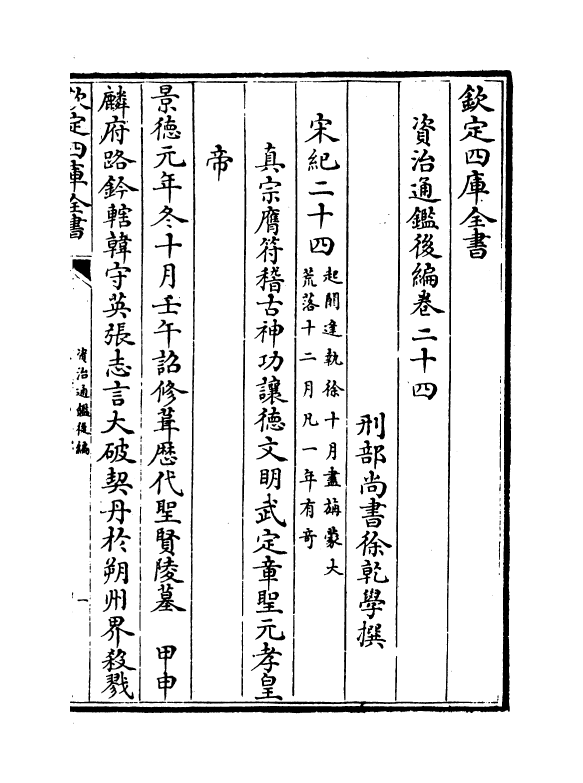 欽定四庫全書
資治通鑑後編卷二十四
刑部尚書徐乾學撰
宋紀二十四
起閼逢執徐十月盡旃蒙大
荒落十二月凡一年有奇
真宗膺符稽古神功讓德文明武定章聖元孝皇
帝
景德元年冬十月壬午詔修葺歴代聖賢陵墓 甲申
麟府路鈐轄韓守英張志言大破契丹於朔州界殺戮
欽定四庫全書
資治通鑑後編
一